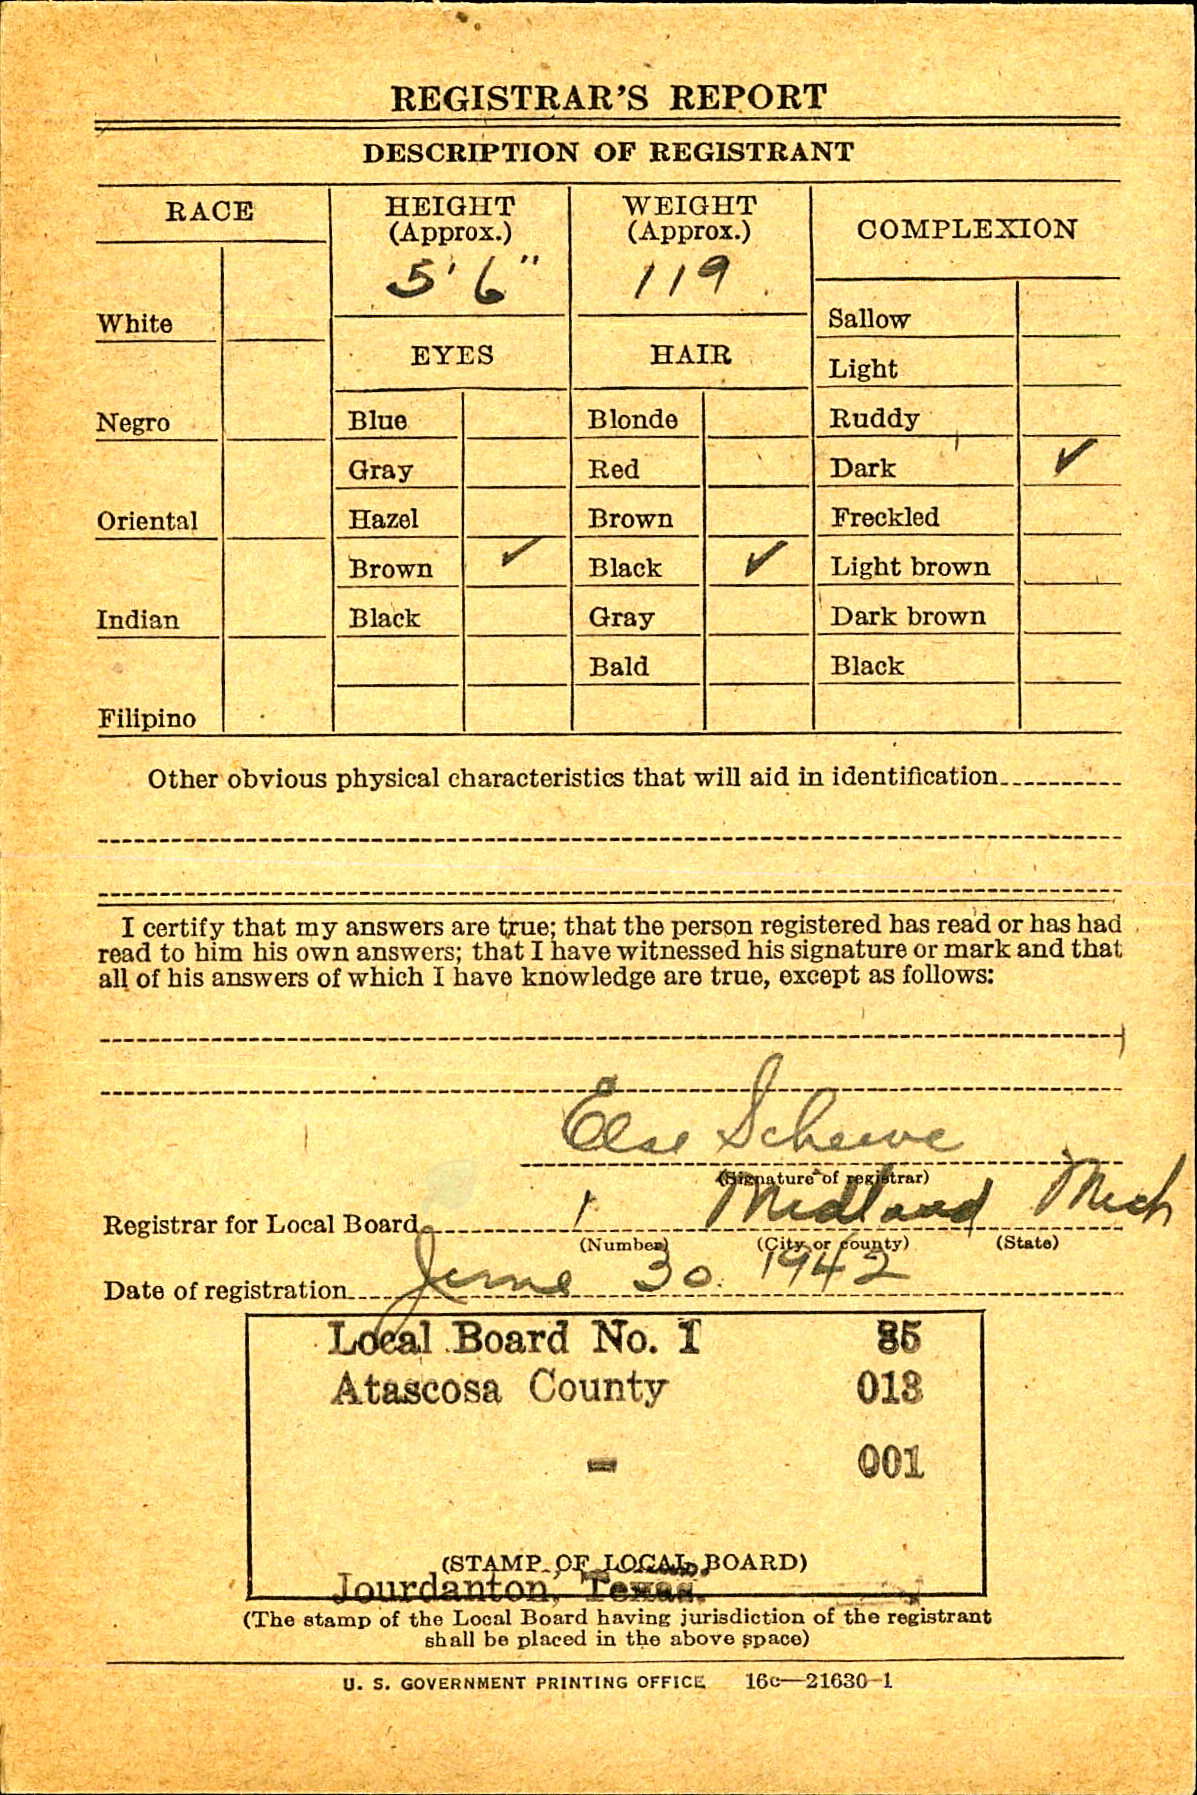 REGISTRAR'S REPORT
DESCRIPTION OF REGISTRANT
RACE
White
Negro
Oriental
Indian
Filipino
HEIGHT
(Approx.)
5' 6"
EYES
Blue
Gray
Hazel
Brown ✓
Black
WEIGHT
(Approx.)
119
HAIR
Blonde
Red
Brown
Black ✓
Gray
Bald
COMPLEXION
Sallow
Light
Ruddy
Dark ✓
Freckled
Light brown
Dark brown
Black
Other obvious physical characteristics that will aid in identification
I certify that my answers are true; that the person registered has read or has had
read to him his own answers; that I have witnessed his signature or mark and that
all of his answers of which I have knowledge are true, except as follows:
Else Scheeve
(Signature of registrar)
Registrar for Local Board 1 Midland Mich
(Number) (City or county) (State)
Date of registration June 30 1942
Local Board No. 1 85
Atascosa County 013
- 001
(STAMP OF LOCAL BOARD)
Jourdanton, Texas.
(The stamp of the Local Board having jurisdiction of the registrant
shall be placed in the above space)
U. S. GOVERNMENT PRINTING OFFICE 16c—21630-1